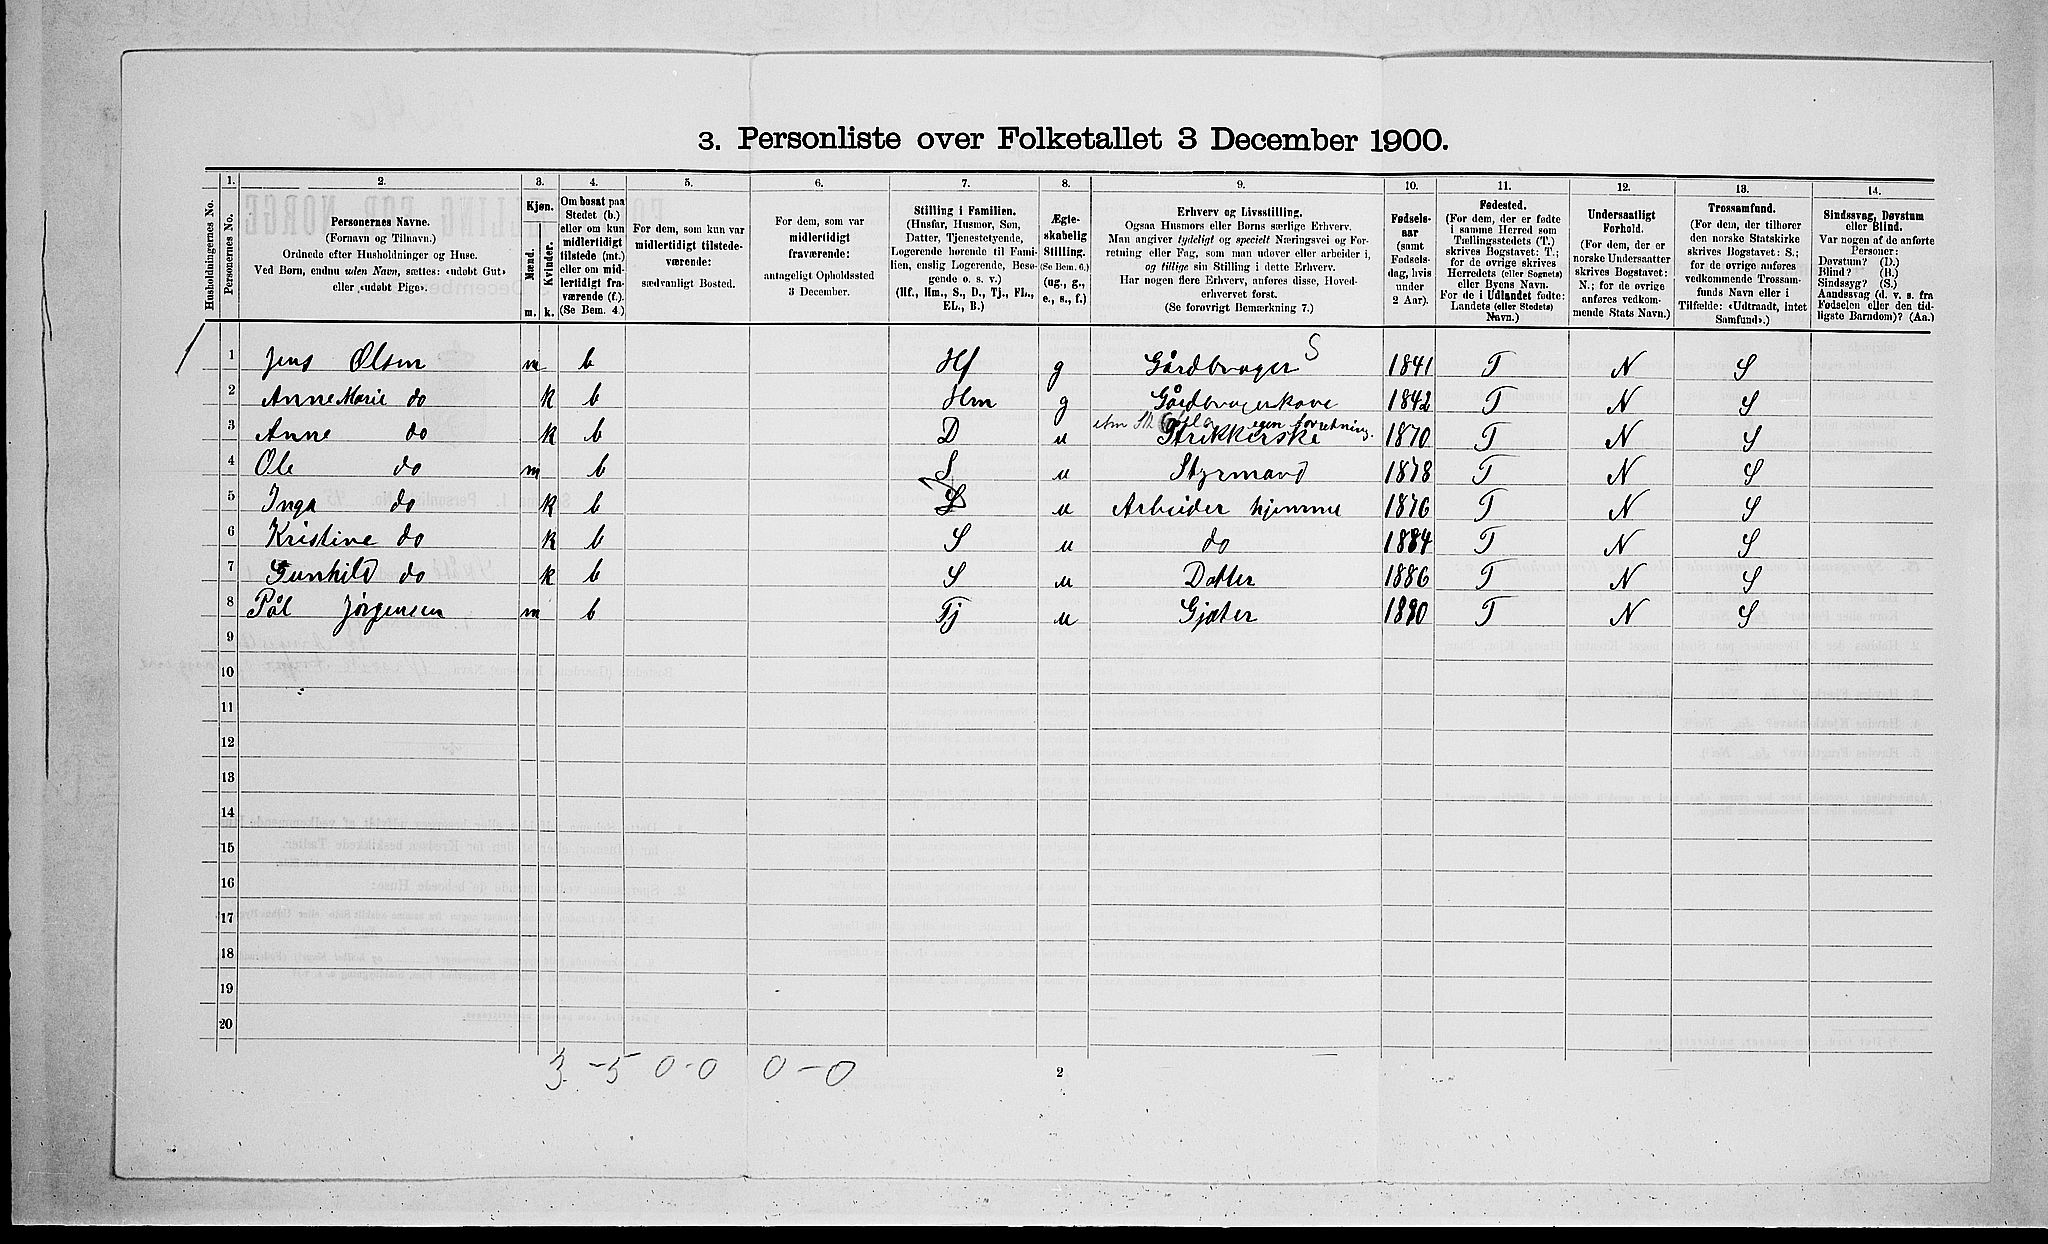 3. Personliste over Folketallet 3 December 1900.
1. 2. 3. 4. 5. 6. 7. 8. 9. 10. 11. 12. 13. 14.
Husholdningernes No.
Personernes No.
Personernes Navne.
(Fornavn og Tilnavn.)
Ordnede efter Husholdninger og Huse.
Ved Børn, endnu uden Navn, sættes: «udøbt Gut»
eller «udøbt Pige».
Kjøn.
Mænd.
Kvinder.
m. k.
Om bosat paa
Stedet (b.)
eller om kun
midlertidigt
tilstede (mt.)
eller om mid-
lertidigt fra-
værende (f.).
(Se Bem. 4.)
For dem, som kun var
midlertidigt tilstede-
værende:
sædvanligt Bosted.
For dem, som var
midlertidigt
fraværende:
antageligt Opholdssted
3 December.
Stilling i Familien.
(Husfar, Husmor, Søn,
Datter, Tjenestetyende,
Logerende hørende til Fami-
lien, enslig Logerende, Besø-
gende o. s. v.)
(Hf., Hm., S., D., Tj., FL.,
EL., B.)
Ægte-
skabelig
Stilling.
(Se Bem. 6.)
(ug., g.,
e., s., f.)
Erhverv og Livsstilling.
Ogsaa Husmors eller Børns særlige Erhverv.
Man angiver tydeligt og specielt Næringsvei og For-
retning eller Fag, som man udøver eller arbeider i,
og tillige sin Stilling i dette Erhverv.
Har nogen flere Erhverv, anføres disse, Hoved-
erhvervet først.
(Se forøvrigt Bemærkning 7.)
Fødsels-
aar
(samt
Fødsels-
dag, hvis
under
2 Aar).
Fødested.
(For dem, der er fødte
i samme Herred som
Tællingsstedets (T.)
skrives Bogstavet: T.;
for de øvrige skrives
Herredets (eller Sognets)
eller Byens Navn.
For de i Udlandet fødte:
Landets (eller Stedets)
Navn.)
Undersaatligt
Forhold.
(For dem, der er
norske Undersaatter
skrives Bogstavet:
N.; for de øvrige
anføres vedkom-
mende Stats Navn.)
Trossamfund.
(For dem, der tilhører
den norske Statskirke
skrives Bogstavet: S.;
for de øvrige anføres
vedkommende Trossam-
funds Navn eller i
Tilfælde: «Udtraadt, intet
Samfund».)
Sindssvag, Døvstum
eller Blind.
Var nogen af de anførte
Personer:
Døvstum? (D.)
Blind? (B.)
Sindssyg? (S.)
Aandssvag (d. v. s. fra
Fødselen eller den tid-
ligste Barndom)? (Aa.)
1 Jens Olsen m b Hf g Gårdbruger S 1841 T N S
2 Anne Marie do k b Hm g Gårdbrugerkone 1842 T N S
egen forretning.
3 Anne do k b D u Strikkerske 1870 T N S
4 Ole do m b S u Styrmand 1878 T N S
5 Inga do k b D u Arbeider hjemme 1876 T N S
6 Kristine do k b S u do 1884 T N S
7 Gunhild do k b S u Datter 1886 T N S
8 Pål Jørgensen m b Tj u Gjæter 1890 T N S
9
10
11
12
13
14
15
16
17
18
19
20
3 - 5 0 - 0 0 - 0
2